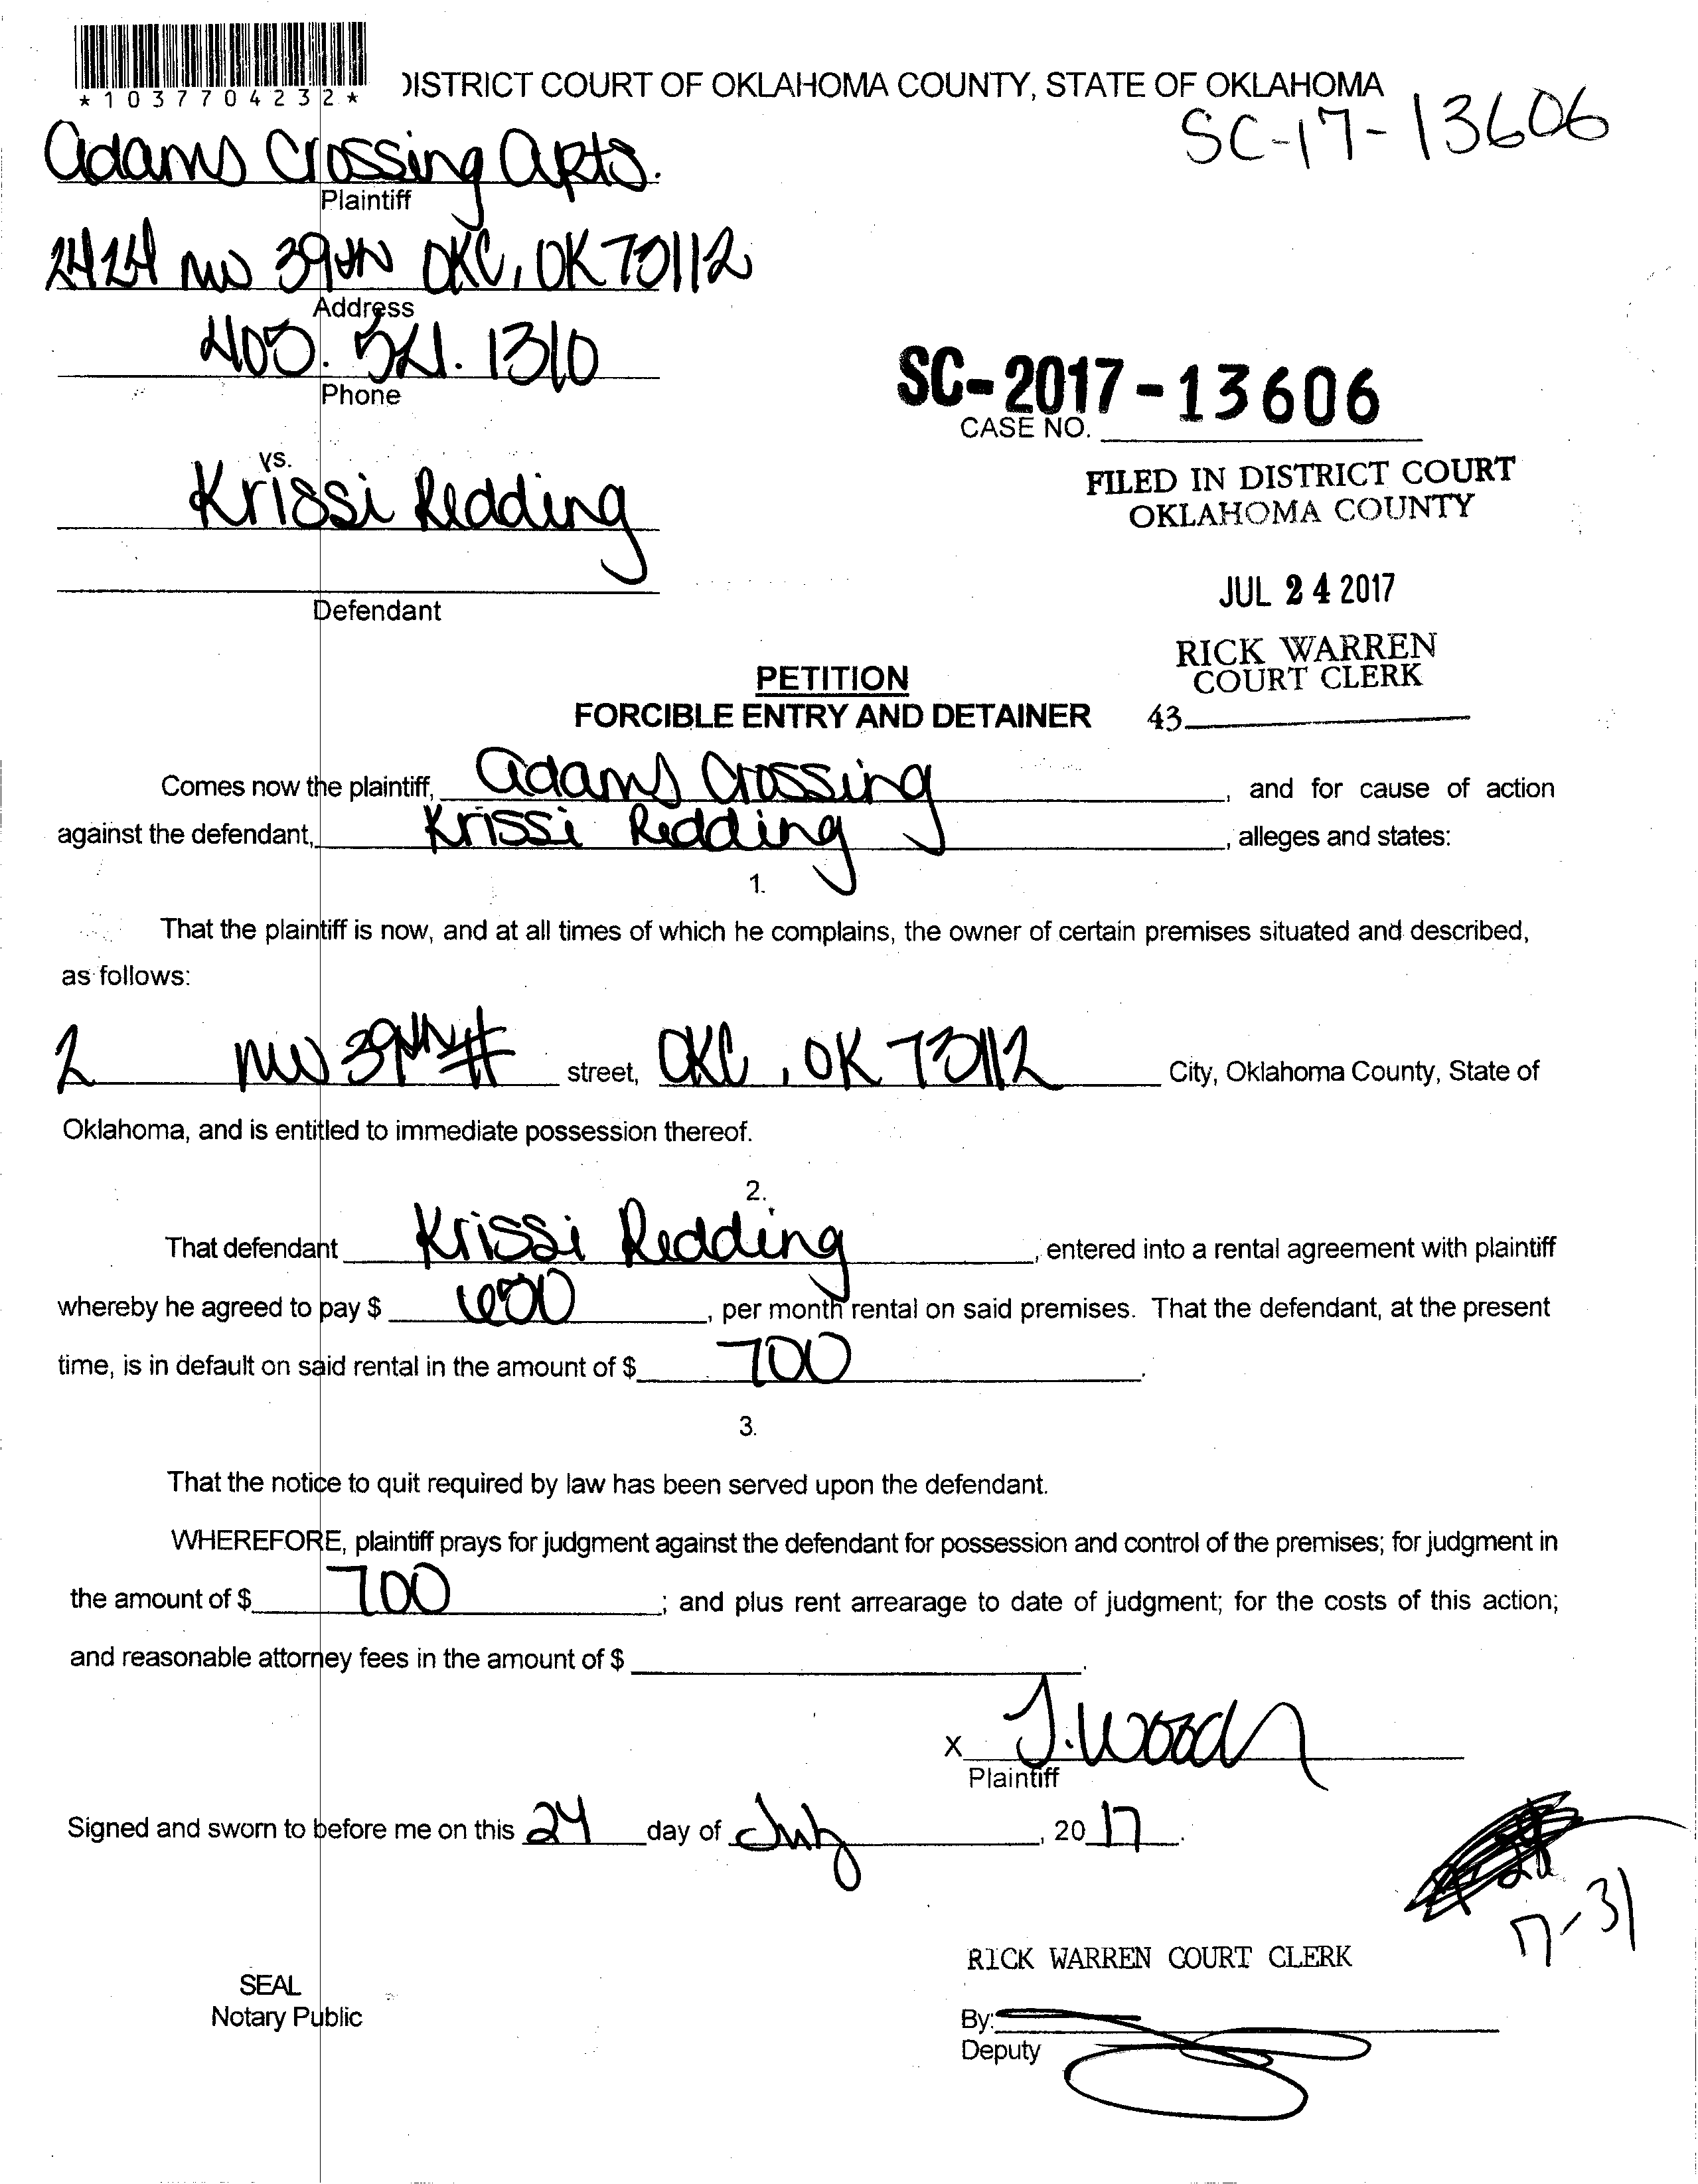 *1037704232*
DISTRICT COURT OF OKLAHOMA COUNTY, STATE OF OKLAHOMA
SC-17-13606
Adams Crossing Apts.
Plaintiff
2424 NW 39th OKC, OK 73112
Address
405. 521. 1310
Phone
SC-2017-13606
CASE NO.
vs.
Krissi Redding
FILED IN DISTRICT COURT
OKLAHOMA COUNTY
JUL 24 2017
Defendant
RICK WARREN
COURT CLERK
43
PETITION
FORCIBLE ENTRY AND DETAINER
Comes now the plaintiff, Adams Crossing, and for cause of action
against the defendant, Krissi Redding, alleges and states:
1.
That the plaintiff is now, and at all times of which he complains, the owner of certain premises situated and described,
as follows:
2 NW 39th # street, OKC, OK 73112 City, Oklahoma County, State of
Oklahoma, and is entitled to immediate possession thereof.
2.
That defendant Krissi Redding, entered into a rental agreement with plaintiff
whereby he agreed to pay $ 650, per month rental on said premises. That the defendant, at the present
time, is in default on said rental in the amount of $ 700.
3.
That the notice to quit required by law has been served upon the defendant.
WHEREFORE, plaintiff prays for judgment against the defendant for possession and control of the premises; for judgment in
the amount of $ 700; and plus rent arrearage to date of judgment; for the costs of this action;
and reasonable attorney fees in the amount of $ .
X J. Woods
Plaintiff
Signed and sworn to before me on this 24 day of July, 2017.
7-31
RICK WARREN COURT CLERK
SEAL
Notary Public
By:
Deputy